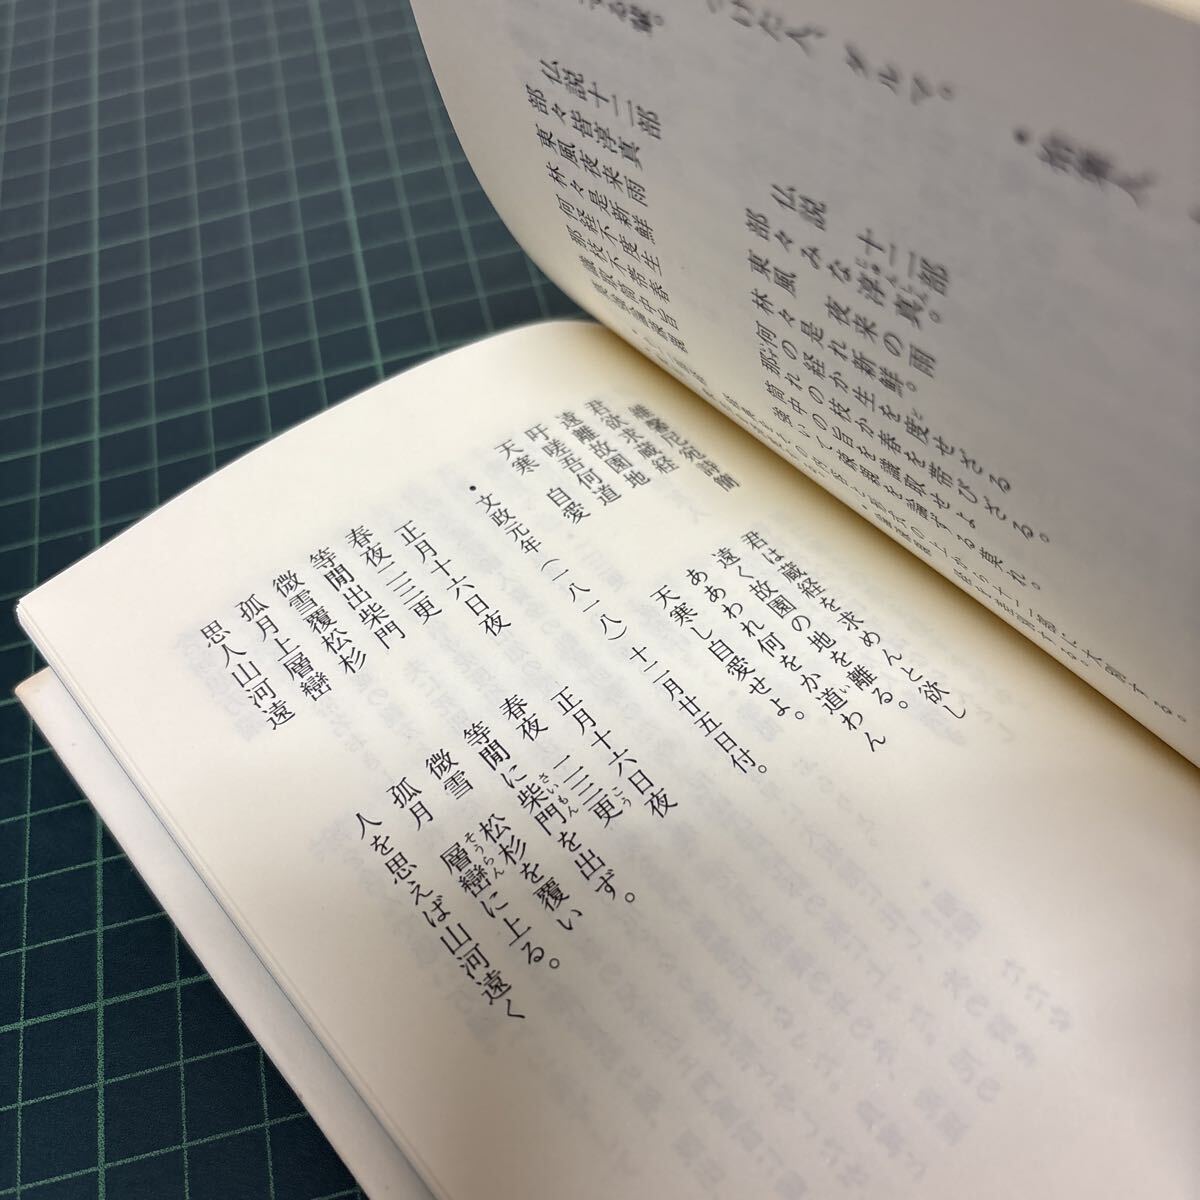 けた人、ダルマ。
仏説十二部
部々皆淳真
東風夜来雨
林々是新鮮
何経不度生
那枝不帯春
識取箇中旨
仏説　十二部
部々みな淳真。
東風　夜来の雨
林々是れ新鮮。
何の経か生を度せざる
那れの枝か春を帯びざる。
箇中の旨を識取せよ
強いて疎親を論ずる莫れ。
維馨尼宛詩簡
君欲求蔵経
遠離故園地
吁嗟吾何道
天寒　自愛
君は蔵経を求めんと欲し
遠く故園の地を離る。
ああわれ何をか道わん
天寒し自愛せよ。
・文政元年(一八一八)十二月廿五日付。
正月十六日夜
春夜二三更
等閒出柴門
微雪覆松杉
孤月上層巒
思人山河遠
正月十六日夜
春夜　二三更
等閒に柴門を出ず。
微雪　松杉を覆い
孤月　層巒に上る。
人を思えば山河遠く